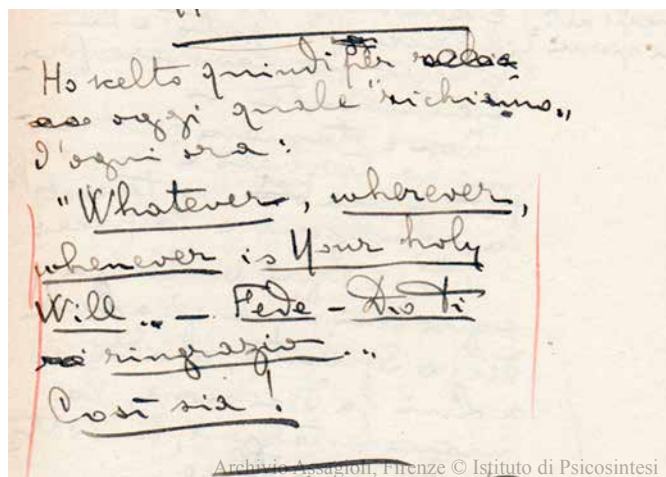 Ho scelto quindi per
oggi quale "richiamo„
d'ogni ora:
"Whatever, wherever,
whenever is Your holy
Will„ — Fede - Dio Ti
ringrazio„
Così sia!
Archivio Assagioli, Firenze © Istituto di Psicosintesi